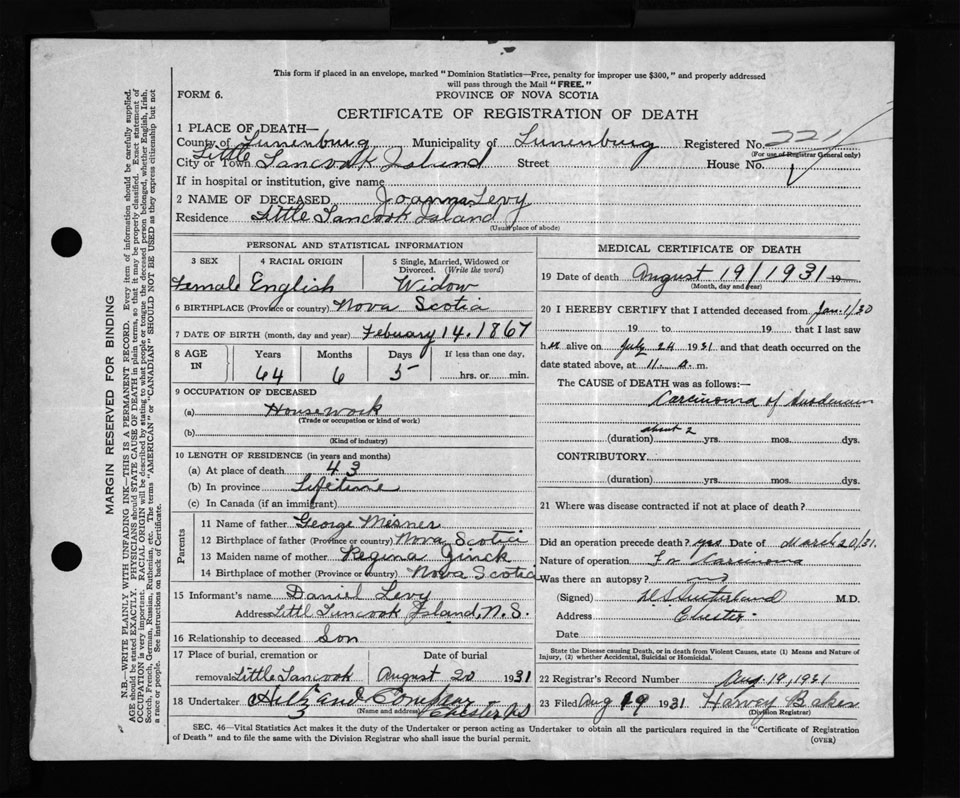 This form if placed in an envelope, marked "Dominion Statistics—Free, penalty for improper use $300," and properly addressed
will pass through the Mail "FREE."
FORM 6.
PROVINCE OF NOVA SCOTIA
CERTIFICATE OF REGISTRATION OF DEATH
1 PLACE OF DEATH—
County of Lunenburg Municipality of Lunenburg Registered No. 221
(For use of Registrar General only)
City or Town Little Tancook Island Street House No.
If in hospital or institution, give name
2 NAME OF DECEASED Joanna Levy
Residence Little Tancook Island
(Usual place of abode)
PERSONAL AND STATISTICAL INFORMATION
3 SEX 4 RACIAL ORIGIN 5 Single, Married, Widowed or Divorced. (Write the word)
Female English Widow
6 BIRTHPLACE (Province or country) Nova Scotia
7 DATE OF BIRTH (month, day and year) Febuary 14, 1867
8 AGE IN Years Months Days If less than one day,
64 6 5 hrs. or min.
9 OCCUPATION OF DECEASED
(a) Housework
(Trade or occupation or kind of work)
(b)
(Kind of industry)
10 LENGTH OF RESIDENCE (in years and months)
(a) At place of death 43
(b) In province Lifetime
(c) In Canada (if an immigrant)
Parents
11 Name of father George Misner
12 Birthplace of father (Province or country) Nova Scotia
13 Maiden name of mother Regina Zinck
14 Birthplace of mother (Province or country) Nova Scotia
15 Informant's name Daniel Levy
Address Little Tancook Island, N.S.
16 Relationship to deceased Son
17 Place of burial, cremation or Date of burial
removal Little Tancook August 20 1931
18 Undertaker and Chester NS
(Name and address)
MEDICAL CERTIFICATE OF DEATH
19 Date of death August 19/1931 19
(Month, day and year)
20 I HEREBY CERTIFY that I attended deceased from Jan. 1/30
19 to 19 that I last saw
her alive on July 24 1931 and that death occurred on the
date stated above, at 11 a. m.
The CAUSE OF DEATH was as follows:—
Carcinoma of
about 2
(duration) yrs. mos. dys.
CONTRIBUTORY
(duration) yrs. mos. dys.
21 Where was disease contracted if not at place of death?
Did an operation precede death? yes Date of March 20/31.
Nature of operation For Carcinoma
Was there an autopsy? no
(Signed) Sutherland M.D.
Address Chester
Date
State the Disease causing Death, or in death from Violent Causes, state (1) Means and Nature of Injury, (2) whether Accidental, Suicidal or Homicidal.
22 Registrar's Record Number Aug. 19, 1931
23 Filed Aug 19 1931 Harvey Baker
(Division Registrar)
SEC. 46—Vital Statistics Act makes it the duty of the Undertaker or person acting as Undertaker to obtain all the particulars required in the "Certificate of Registration
of Death" and to file the same with the Division Registrar who shall issue the burial permit.
(OVER)
MARGIN RESERVED FOR BINDING
N.B.—WRITE PLAINLY WITH UNFADING INK—THIS IS A PERMANENT RECORD. Every item of information should be carefully supplied.
AGE should be stated EXACTLY. PHYSICIANS should STATE CAUSE OF DEATH in plain terms, so that it may be properly classified. Exact statement of
OCCUPATION is very important. RACIAL ORIGIN will be described by stating to what people or tongue the deceased person belonged, whether English, Irish,
Scotch, French, German, Russian, Ruthenian, etc. The terms "AMERICAN" or "CANADIAN" SHOULD NOT BE USED as they express citizenship but not
a race or people. See instructions on back of Certificate.